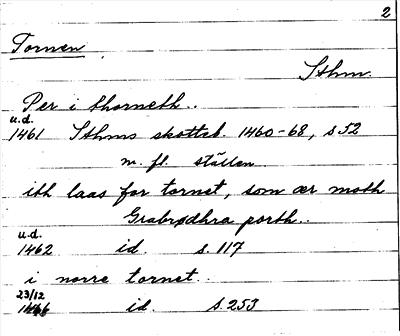 2
Tornen
Sthm.
Per i thorneth..
u.d.
1461 Sthms skotteb. 1460-68, s 52
m. fl. ställen
ith laas for tornet, som ær moth
Grabrødhra porth..
u.d.
1462 id. s. 117
i norre tornet..
23/12
1466 id. s. 253